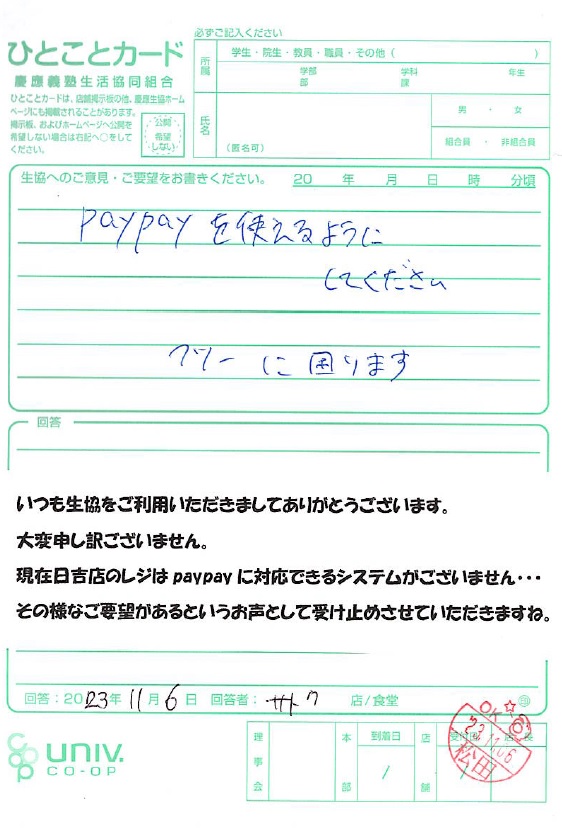 必ずご記入ください
ひとことカード
慶應義塾生活協同組合
ひとことカードは、店舗掲示板の他、慶應生協ホーム
ページにも掲載されることがあります。
掲示板、およびホームページへ公開を
希望しない場合は右記へ○をして
ください。
公開
希望
しない
所属
学生・院生・教員・職員・その他 ( )
学部 学科 年生
部 課
氏名
(匿名可)
男 ・ 女
組合員 ・ 非組合員
生協へのご意見・ご要望をお書きください。 20 年 月 日 時 分頃
paypay を使えるように
してください
に困ります
回答
いつも生協をご利用いただきましてありがとうございます。
大変申し訳ございません。
現在日吉店のレジは paypay に対応できるシステムがございません・・・
その様なご要望があるというお声として受け止めさせていただきますね。
回答：2023年 11月 6日 回答者： サトウ 店/食堂
理事会
本部
到着日
/
店舗
店長
OK☆
23.11.06
松田
UNIV.
CO-OP